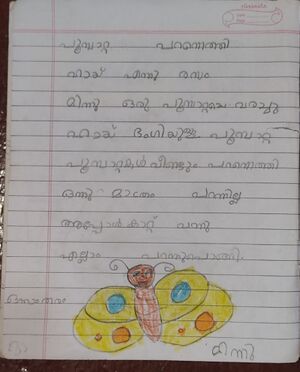 പൂമ്പാറ്റ പറന്നെത്തി
ഹായ് എന്തു രസം
മിന്നു ഒരു പൂമ്പാറ്റയെ വരച്ചു
ഹായ് ഭംഗിയുള്ള പൂമ്പാറ്റ
പൂമ്പാറ്റകൾ വീണ്ടും പറന്നെത്തി
ഒന്നു മാത്രം പറന്നില്ല
അപ്പോൾ കാറ്റ് വന്നു
എല്ലാം പറന്നുപൊങ്ങി.
ഒന്നാംതരം
മിന്നു